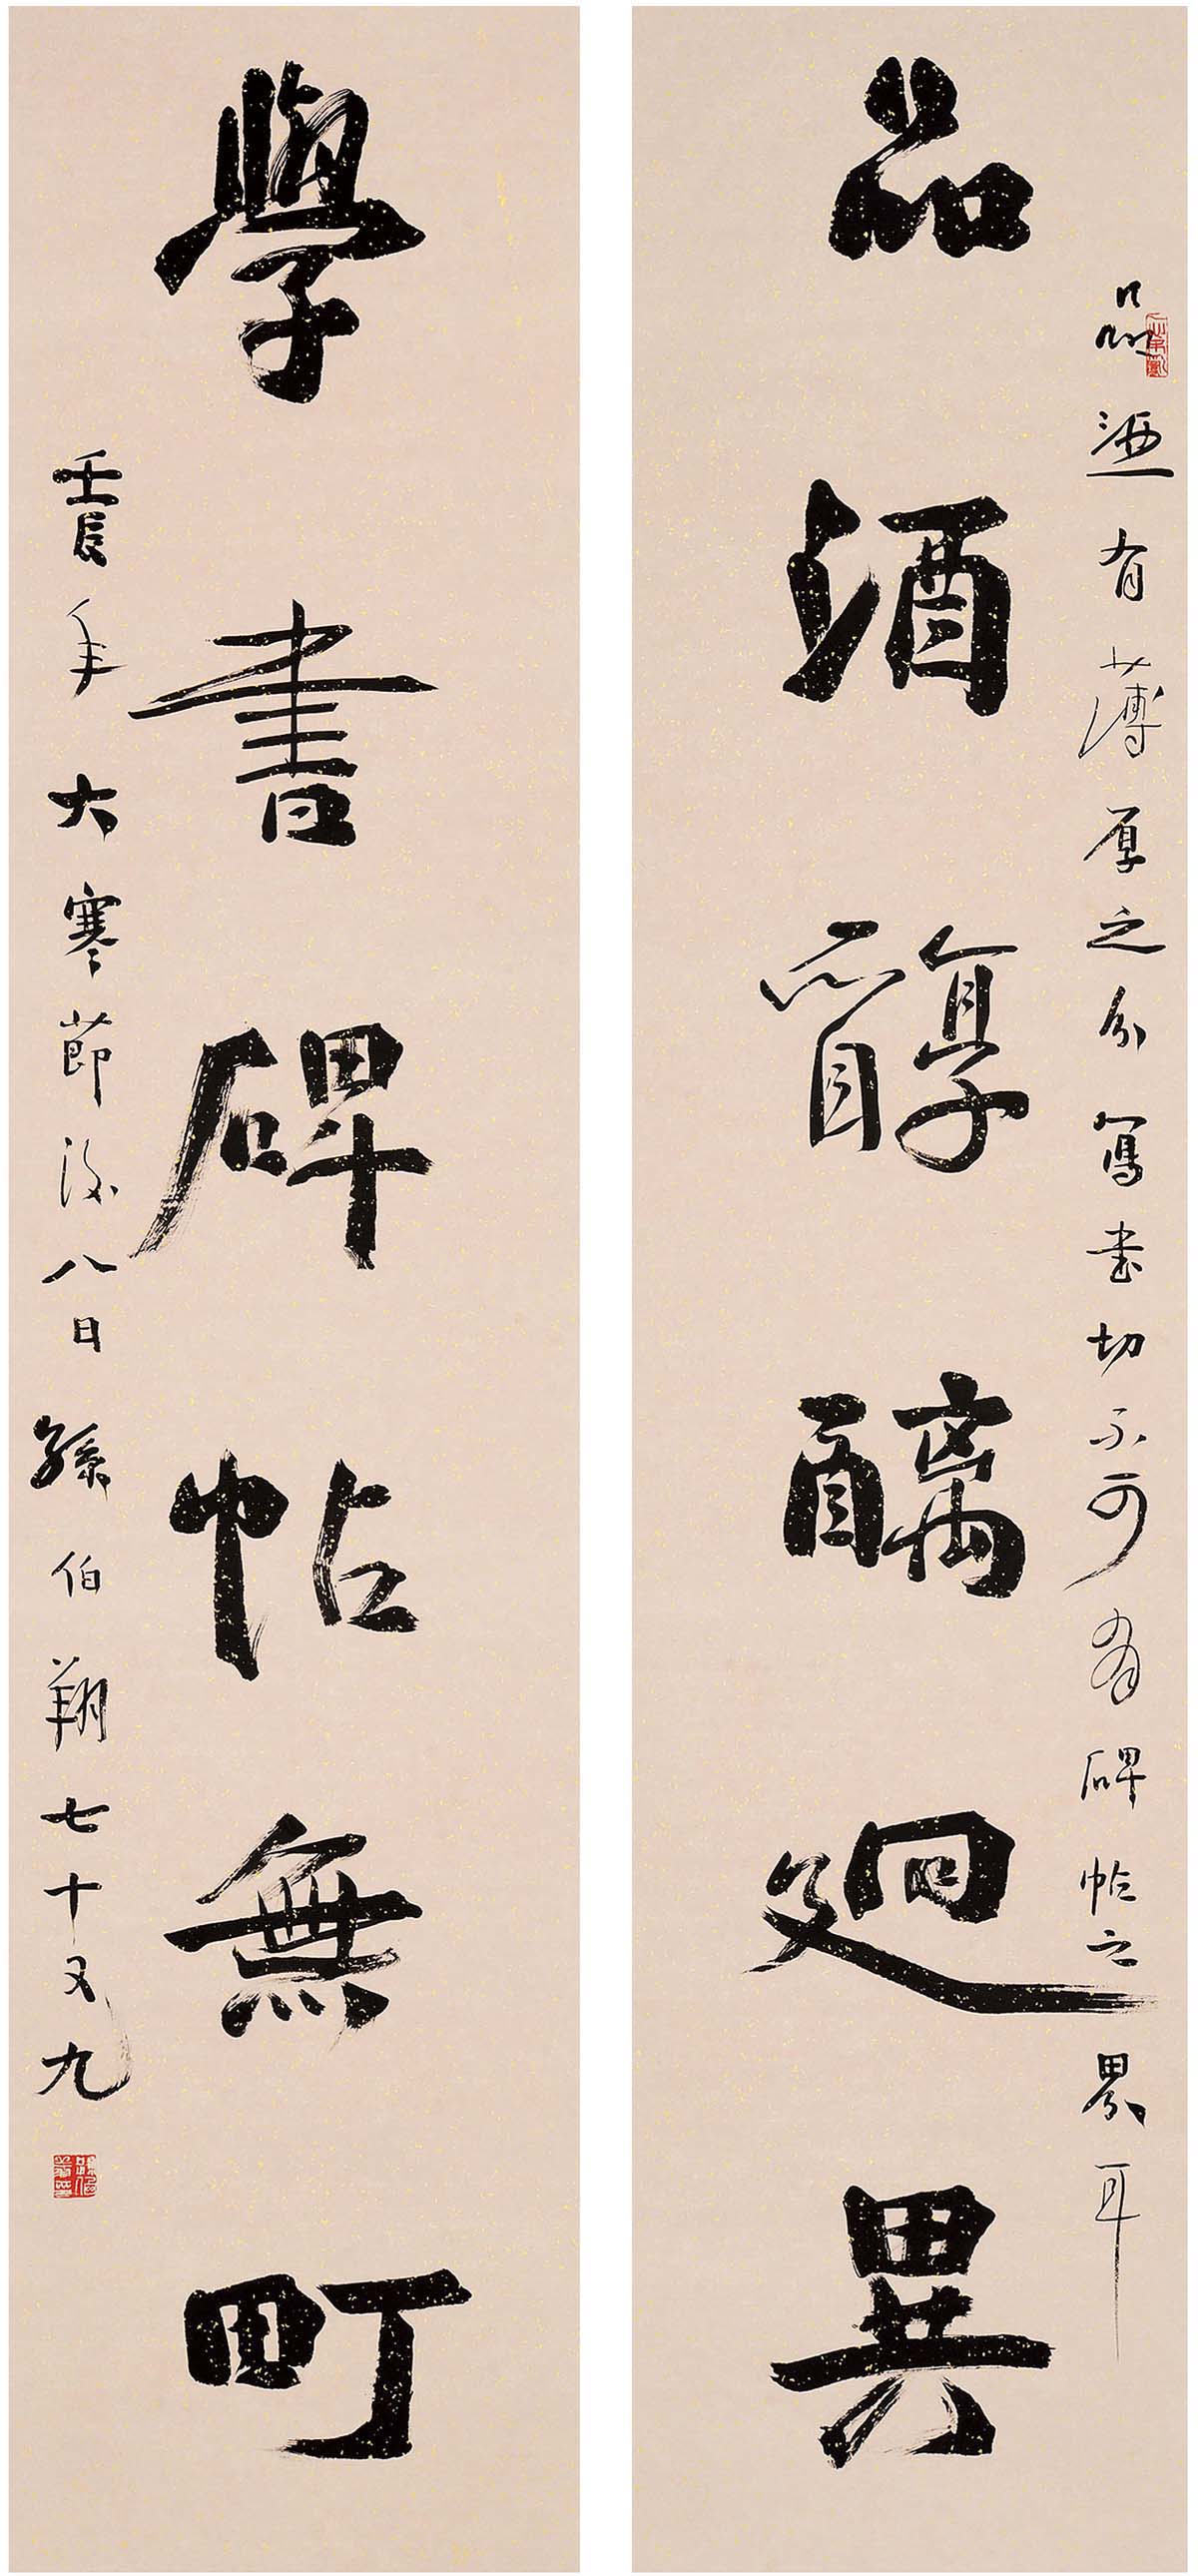 品酒醇醨迥異
品酒有薄厚之分寫書切不可有碑帖之界耳
學書碑帖無町
壬辰年大寒節後八日孫伯翔七十又九